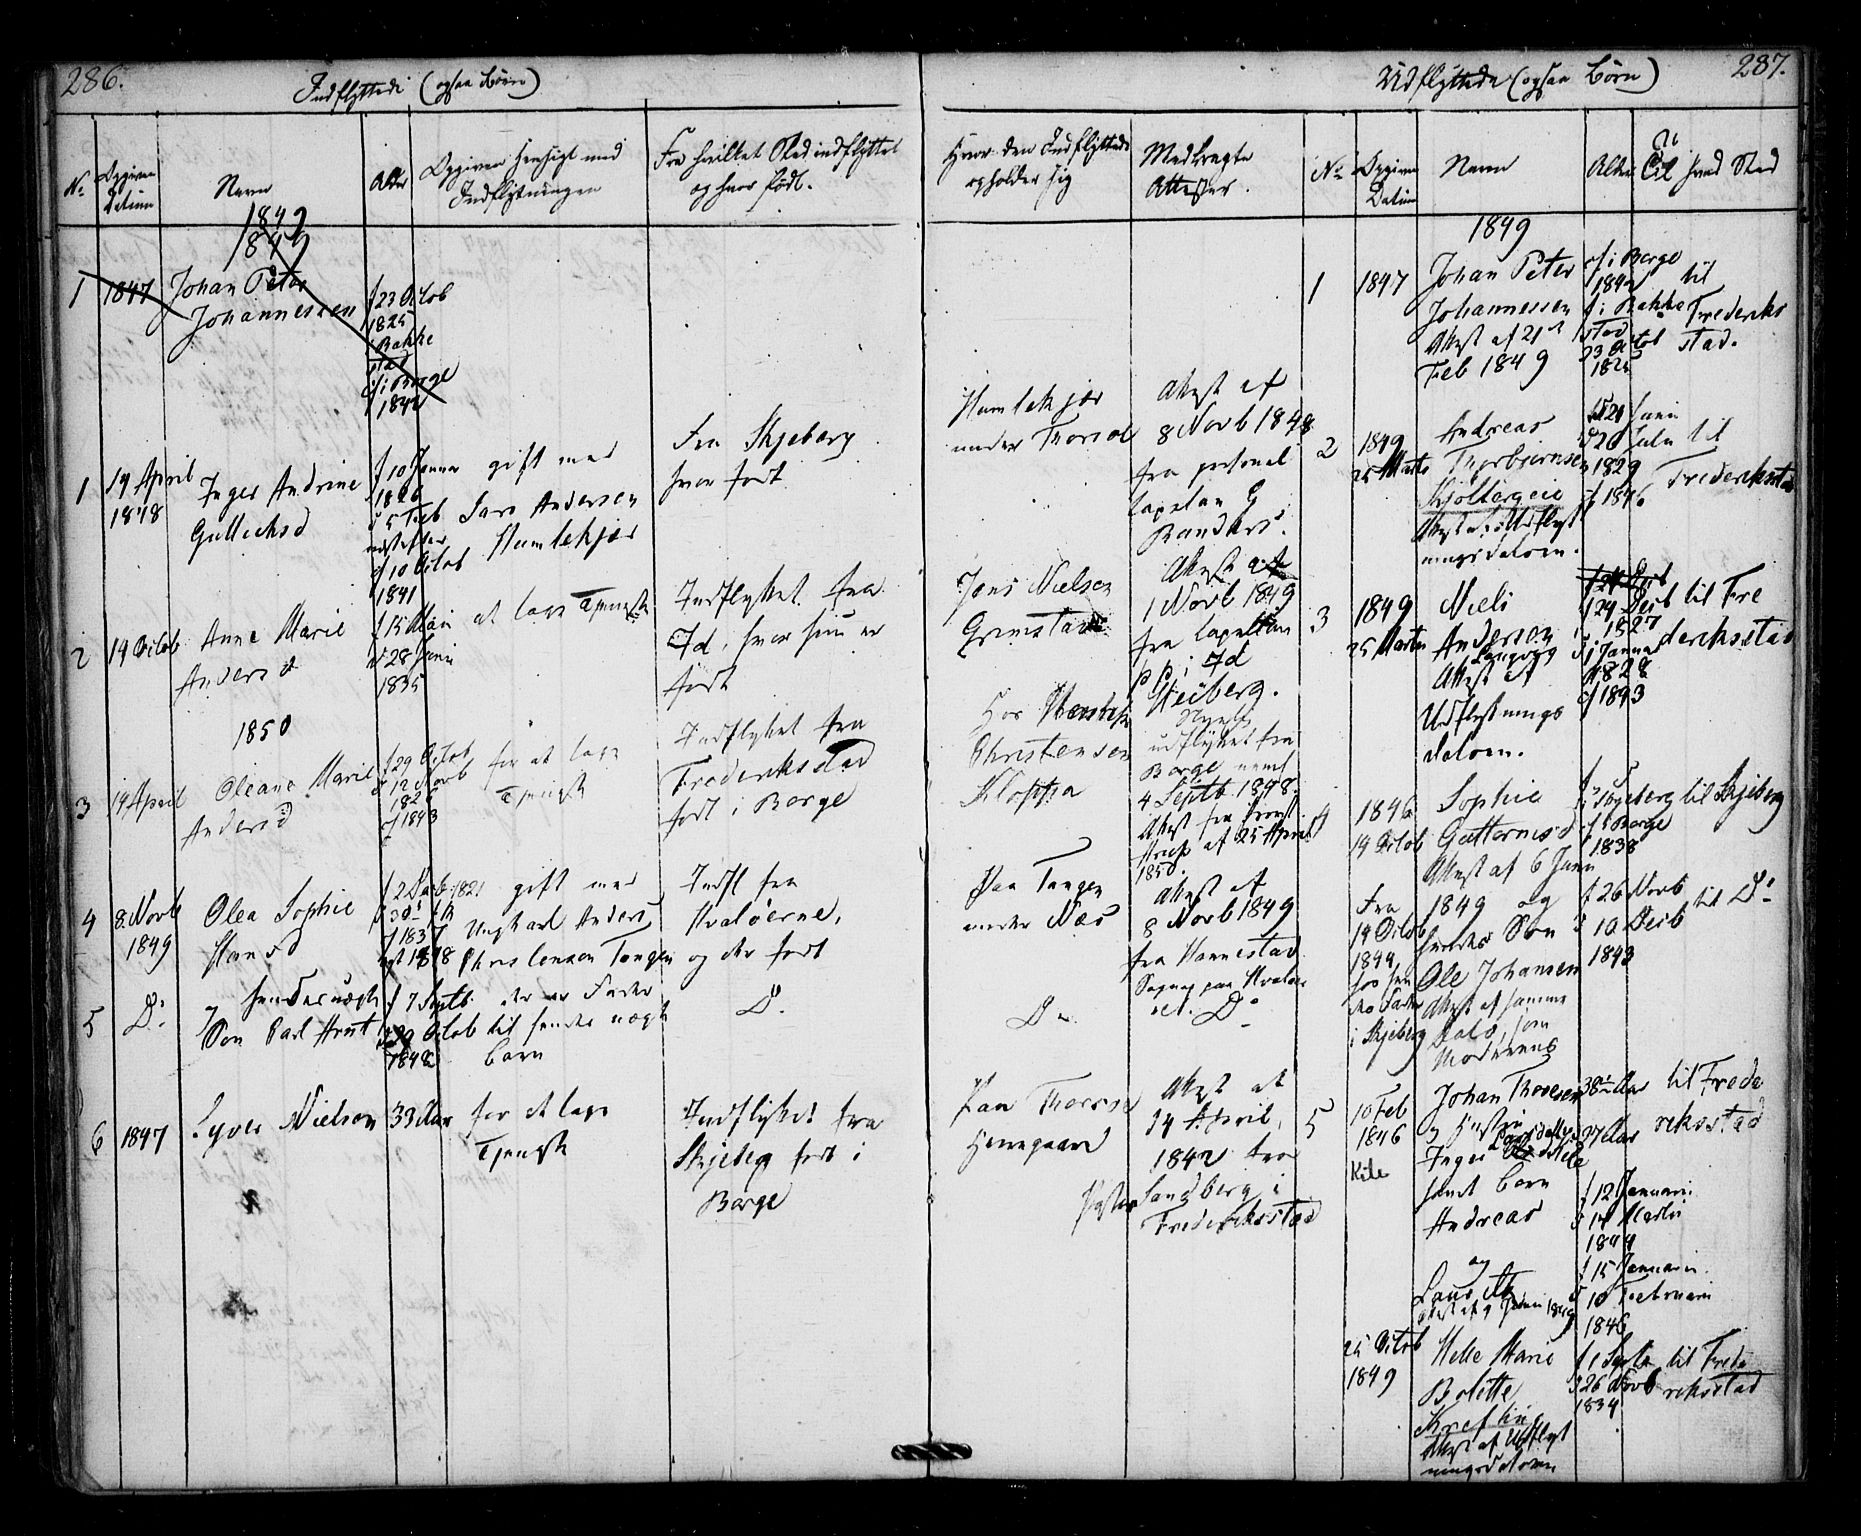 286.
Indflyttede (ogsaa Børn)
No
Opgiven Datum
Navn
Alder
Opgiven Hensigt med Indflytningen
Fra hvilket Sted indflyttet og hvor født.
Hvor den Indflyttede opholder sig
Medbragte Attester.
1849
1849
1 1847 Johan Peter
Johannessen
f 23 Octob
1825
i Bakke
stad
cf i Borge
1842
1 14 April
1848
Inger Andrine
Gulliksd
f 10 Janua
1826
d 5 Feb
cf 10 Octob
1841
gift med
Lars Andersen
Humlekjær
Fra Skjeberg
hvor født
Humlekjær
under Thorsø
Attest af
8 Novb 1848
fra personel
Capelan G
Randers.
2 14 Octob
Anne Marie
Andersd
f 15 Mai
d 28 Juni
1835
at tage Tjeneste
Indflyttet fra
Id, hvor hun er
født
Jens Nielsen
Grimstad
Attest af
1 Novb 1849
fra Capellan
p p i Id
1850
3 14 April
Oleane Marie
Andersd
f 29 Octob
d 12 Novb
cf 1843
for at tage
Tjeneste
Indflyttet fra
Frederiksstad
født i Borge
Hos
Christensen
Kloppa
udflyttet fra
Borge
4 Septb 1848.
Attest fra Provst
af 25 April
1850.
4 8. Novb
1849
Olea Sophie
Hansd
f 2 Septb 1821
cf 1837
gift med
Ungkarl Anders
Christensen Tangen
Indfl fra
Hvaløerne,
og der født
Paa Tangen
under Næs
Attest af
8 Novb 1849
fra
Sogn paa Hvaler
5 Do
hendes uægte
Søn Carl
f 7 Septb
Octob
1848
der er Fader
til hendes uægte
Barn
Do
Do
Do
6 1847
Syver Nielsen
33 Aar
for at tage
Tjeneste
Indflyttet fra
Skjeberg født i
Borge
Paa Thorsø
Herregaard
Attest af
14 April,
1842 fra
Pastor Sandberg i
Frederiksstad
287.
Udflyttede (ogsaa Børn)
No
Opgiven Datum
Navn
Alder
Til hvad Sted
1849
1 1847
Johan Peter
Johannessen
Attest af 21
Feb 1849
cf i Borge
1842
f i Bakke
stad
23 Octob
1825
til
Frederiks
stad.
2 1849
25 Marts
Andreas
Thorbjørnsen
Kjølbergeie
Attest
ningsdatoen.
f 21 Juni
d 20 Julii
1829
cf 1846
til
Frederiksstad
3 1849
25 Marts
Niels
Andersen
Attest af
Udflytnings
datoen.
f 24 Decb
1827
d 1 Januar
1828
cf 1843
til Fre
deriksstad
4 1846
14 Octob
Sophie
Guttormsd
Attest af 6 Juni
1849 og
f i Skjeberg
cf i Borge
1838
til Skjeberg
Fra
14 Octob
1844,
hos sin
Fader
i Skjeberg
hendes Søn
Ole Johansen
Attest af samme
Dato, som
Moderens
f 26 Novb
d 10 Decb
1843
til Do
5 10 Feb
1846
Johan Thoresen
& Hustru
Inger
samt Børn
Andreas
38 Aar
37 Aar
f 12 Januari
d 14 Marts
1844
til Frede
riksstad
og
Attest af 9 Juni 1849
f 15 Januari.
d 10 Februari
1846
25 Octob
1849
Helle Marie
Bolette
Attest af Udflyt
ningsdatoen
f 1 Septb
d 26 Novb
1834
til Frede
riksstad